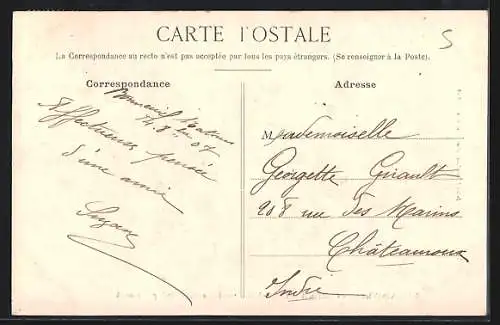 CARTE POSTALE
5
La Correspondance au recto n'est pas acceptée par tous les pays étrangers. (Se renseigner à la Poste).
Correspondance
4.8.07
Affectueuse pensée
d'une amie
Suzanne
Adresse
Mademoiselle
Georgette Girault
208 rue des Marins
Châteauroux
Indre